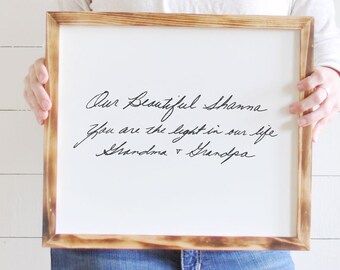 Our Beautiful Shanna
You are the light in our life
Grandma & Grandpa